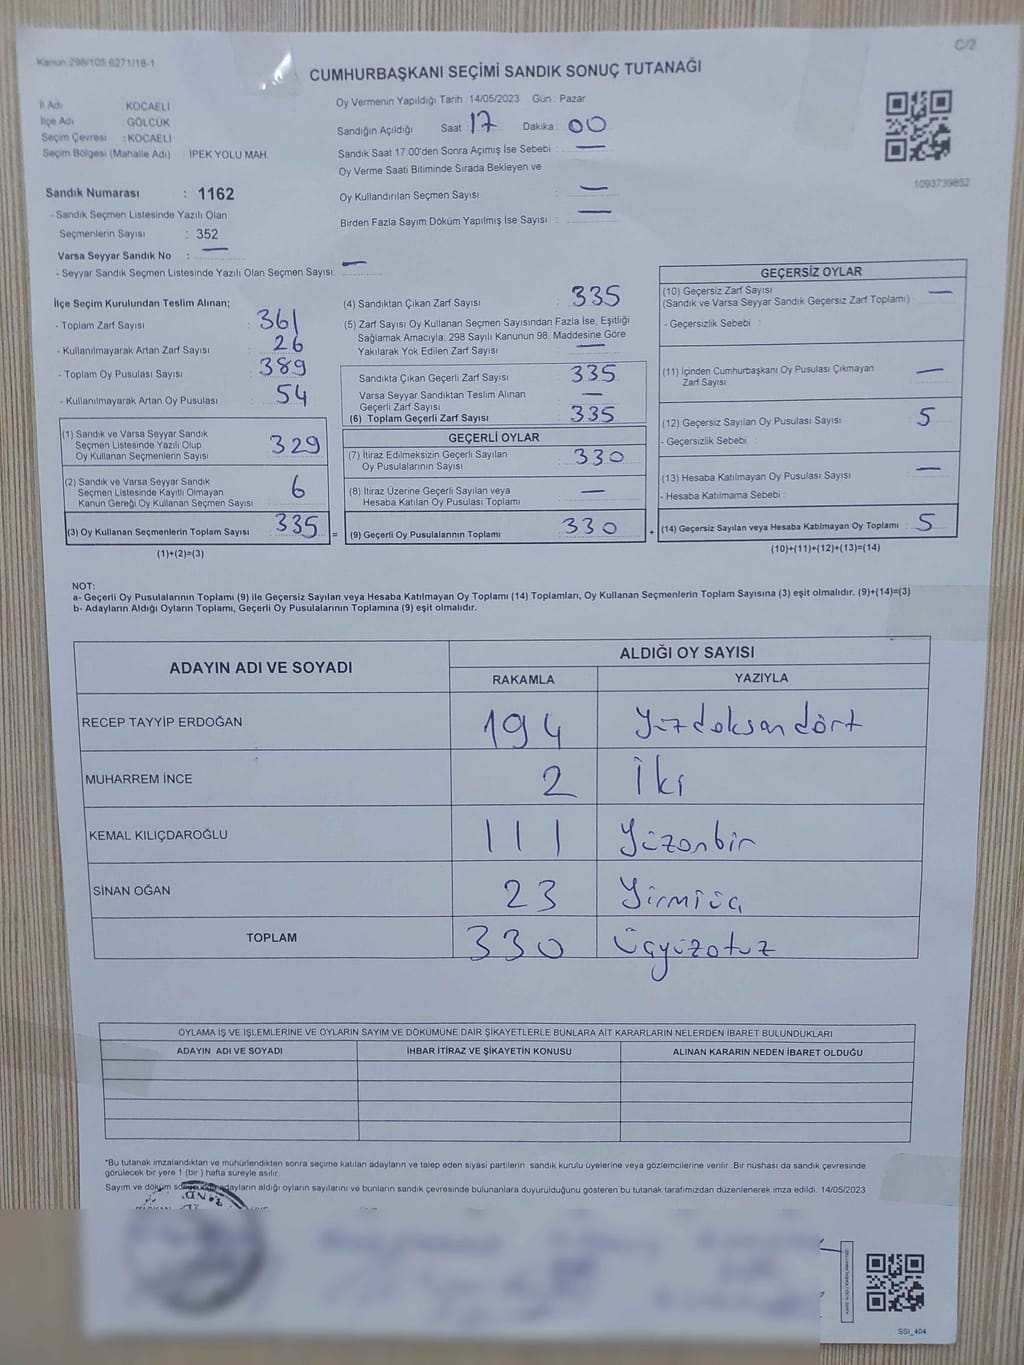 Kanun:298/105 6271/18-1
C/2
CUMHURBAŞKANI SEÇİMİ SANDIK SONUÇ TUTANAĞI
İl Adı KOCAELİ
İlçe Adı GÖLCÜK
Seçim Çevresi : KOCAELİ
Seçim Bölgesi (Mahalle Adı) İPEK YOLU MAH.
Oy Vermenin Yapıldığı Tarih 14/05/2023 Gün : Pazar
Sandığın Açıldığı Saat 17 Dakika 00
Sandık Saat 17.00'den Sonra Açımış İse Sebebi : —
Oy Verme Saati Bitiminde Sırada Bekleyen ve
Oy Kullandırılan Seçmen Sayısı : —
Birden Fazla Sayım Döküm Yapılmış İse Sayısı : —
1093739852
Sandık Numarası : 1162
- Sandık Seçmen Listesinde Yazılı Olan
Seçmenlerin Sayısı : 352
Varsa Seyyar Sandık No : —
- Seyyar Sandık Seçmen Listesinde Yazılı Olan Seçmen Sayısı: —
İlçe Seçim Kurulundan Teslim Alınan;
- Toplam Zarf Sayısı : 361
- Kullanılmayarak Artan Zarf Sayısı : 26
- Toplam Oy Pusulası Sayısı : 389
- Kullanılmayarak Artan Oy Pusulası : 54
(1) Sandık ve Varsa Seyyar Sandık
Seçmen Listesinde Yazılı Olup
Oy Kullanan Seçmenlerin Sayısı : 329
(2) Sandık ve Varsa Seyyar Sandık
Seçmen Listesinde Kayıtlı Olmayan
Kanun Gereği Oy Kullanan Seçmen Sayısı : 6
(3) Oy Kullanan Seçmenlerin Toplam Sayısı : 335
(1)+(2)=(3)
(4) Sandıktan Çıkan Zarf Sayısı : 335
(5) Zarf Sayısı Oy Kullanan Seçmen Sayısından Fazla İse, Eşitliği
Sağlamak Amacıyla; 298 Sayılı Kanunun 98. Maddesine Göre
Yakılarak Yok Edilen Zarf Sayısı : —
Sandıkta Çıkan Geçerli Zarf Sayısı : 335
Varsa Seyyar Sandıktan Teslim Alınan
Geçerli Zarf Sayısı : —
(6) Toplam Geçerli Zarf Sayısı : 335
GEÇERLİ OYLAR
(7) İtiraz Edilmeksizin Geçerli Sayılan
Oy Pusulalarının Sayısı : 330
(8) İtiraz Üzerine Geçerli Sayılan veya
Hesaba Katılan Oy Pusulası Toplamı : —
= (9) Geçerli Oy Pusulalarının Toplamı : 330
GEÇERSİZ OYLAR
(10) Geçersiz Zarf Sayısı : —
(Sandık ve Varsa Seyyar Sandık Geçersiz Zarf Toplamı)
- Geçersizlik Sebebi :
(11) İçinden Cumhurbaşkanı Oy Pusulası Çıkmayan
Zarf Sayısı : —
(12) Geçersiz Sayılan Oy Pusulası Sayısı : 5
- Geçersizlik Sebebi
(13) Hesaba Katılmayan Oy Pusulası Sayısı : —
- Hesaba Katılmama Sebebi :
+ (14) Geçersiz Sayılan veya Hesaba Katılmayan Oy Toplamı : 5
(10)+(11)+(12)+(13)=(14)
NOT:
a- Geçerli Oy Pusulalarının Toplamı (9) ile Geçersiz Sayılan veya Hesaba Katılmayan Oy Toplamı (14) Toplamları, Oy Kullanan Seçmenlerin Toplam Sayısına (3) eşit olmalıdır. (9)+(14)=(3)
b- Adayların Aldığı Oyların Toplamı, Geçerli Oy Pusulalarının Toplamına (9) eşit olmalıdır.
ADAYIN ADI VE SOYADI
ALDIĞI OY SAYISI
RAKAMLA YAZIYLA
RECEP TAYYİP ERDOĞAN 194 Yüzdoksandört
MUHARREM İNCE 2 İki
KEMAL KILIÇDAROĞLU 111 Yüzonbir
SİNAN OĞAN 23 Yirmiüç
TOPLAM 330 Üçyüzotuz
OYLAMA İŞ VE İŞLEMLERİNE VE OYLARIN SAYIM VE DÖKÜMÜNE DAİR ŞİKAYETLERLE BUNLARA AİT KARARLARIN NELERDEN İBARET BULUNDUKLARI
ADAYIN ADI VE SOYADI İHBAR İTİRAZ VE ŞİKAYETİN KONUSU ALINAN KARARIN NEDEN İBARET OLDUĞU
*Bu tutanak imzalandıktan ve mühürlendikten sonra seçime katılan adayların ve talep eden siyasi partilerin sandık kurulu üyelerine veya gözlemcilerine verilir. Bir nüshası da sandık çevresinde
görülecek bir yere 1 (bir ) hafta süreyle asılır.
Sayım ve döküm adayların aldığı oyların sayılarını ve bunların sandık çevresinde bulunanlara duyurulduğunu gösteren bu tutanak tarafımızdan düzenlenerek imza edildi. 14/05/2023
SSI_404